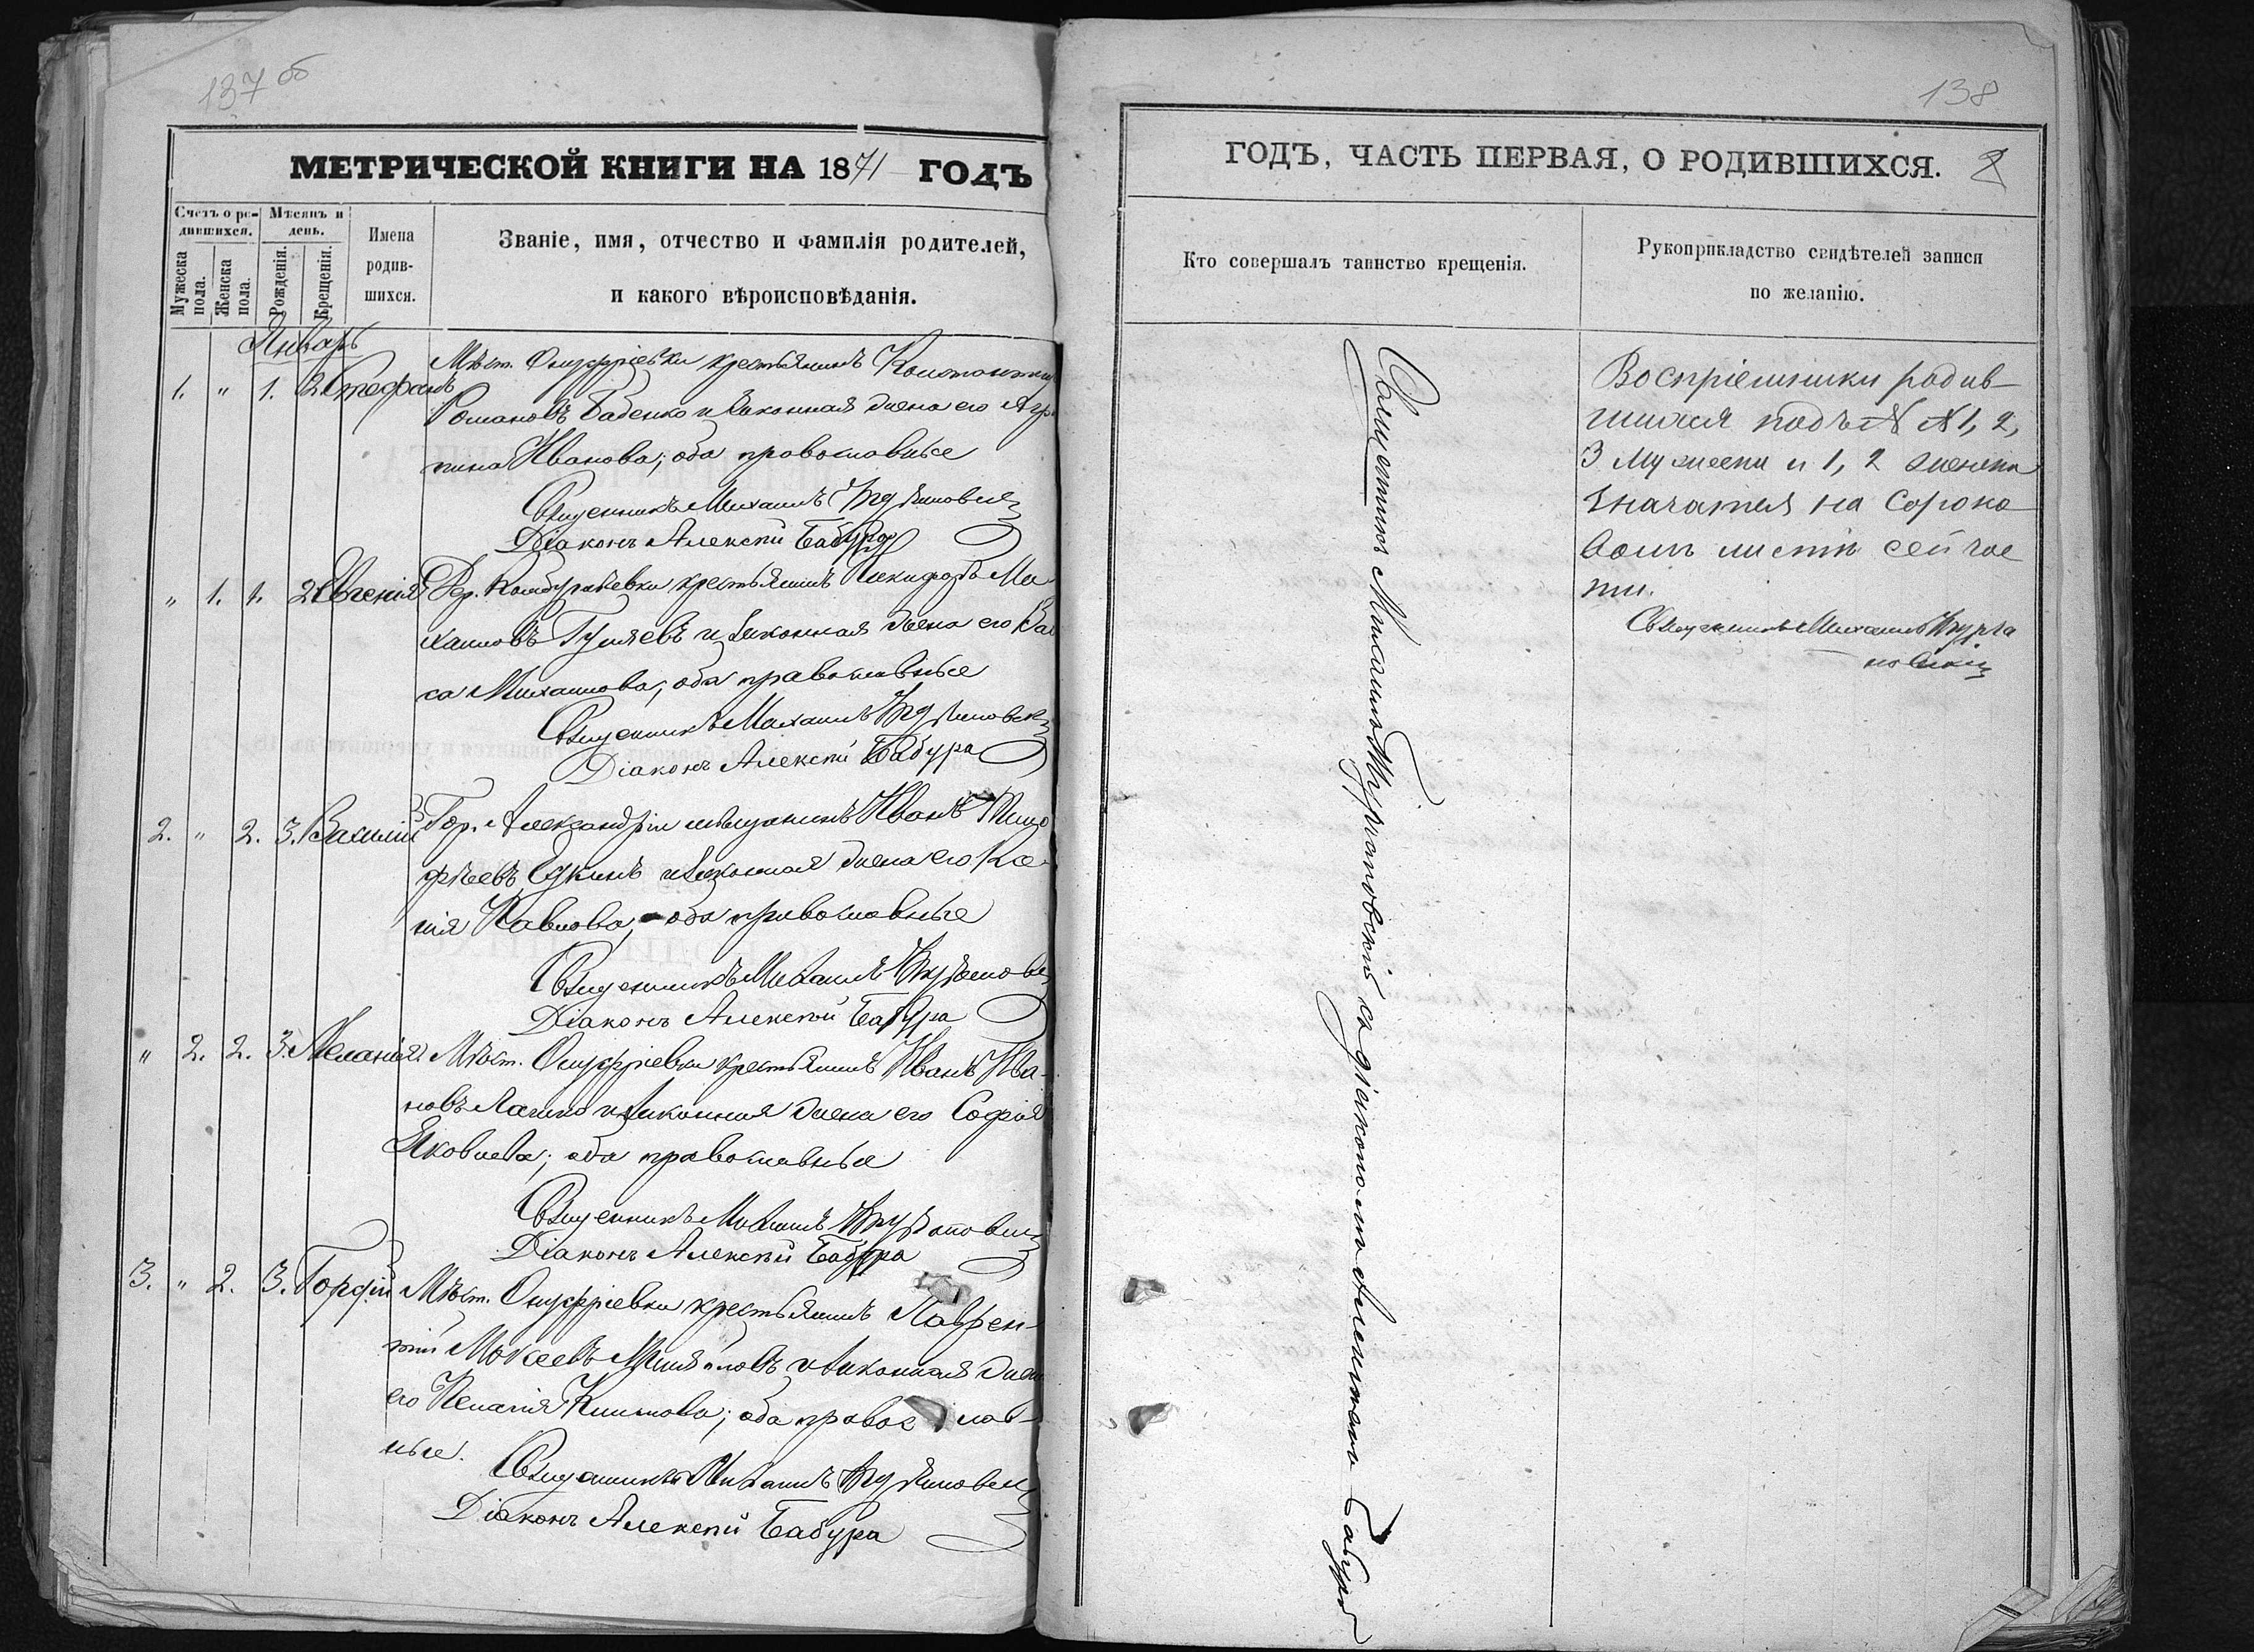 137 об
МЕТРИЧЕСКОЙ КНИГИ НА 1871 ГОДЪ
Счетъ о ро-
дившихся.
Мѣсяцъ и
день.
Мужеска
пола.
Женска
пола.
Рожденія.
Крещенія.
Имена
родив-
шихся.
Званіе, имя, отчество и фамилія родителей,
и какого вѣроисповѣданія.
Январь
1. " 1. 2. Стефанъ
Мѣст. Онуфріевки крестьянинъ Константин
Романовъ Бабенко и законная жена его Агри
пина Иванова; оба православные
Священникъ Михаилъ
Діаконъ Алексѣй Бабура
" 1. 1. 2. Евгенія
Дер. крестьянинъ Никифоръ Ми-
хаиловъ Гуляевъ и законная жена его Вас
са Михаилова; оба православные
Священникъ Михаилъ
Діаконъ Алексѣй Бабура
2. " 2. 3. Василій
Гор. Александріи мѣщанинъ Иванъ Тимо
фѣевъ и законная жена его Ксе-
нія Павлова, оба православные
Священникъ Михаилъ
Діаконъ Алексѣй Бабура
" 2. 2. 3. Меланія
Мѣст. Онуфріевки крестьянинъ Иванъ Ива-
новъ и законная жена его Софія
Яковлева; оба православные
Священникъ Михаилъ
Діаконъ Алексѣй Бабура
3. " 2. 3. Гордій
Мѣст. Онуфріевки крестьянинъ Лаврен-
тій Мокеевъ и законная жена
его Пелагія Климова; оба правос лав-
ные.
Священникъ Михаилъ
Діаконъ Алексѣй Бабура
138
ГОДЪ, ЧАСТЬ ПЕРВАЯ, О РОДИВШИХСЯ. 2
Кто совершалъ таинство крещенія.
Рукоприкладство свидѣтелей записи
по желанію.
Священникъ Михаилъ съ діакономъ Алексѣемъ Бабурой
Воспріемники родив-
шихся подъ №№ 1, 2,
3 мужески и 1, 2 женски
значатся на сорока
вомъ листѣ сей час
ти.
Священникъ Михаилъ